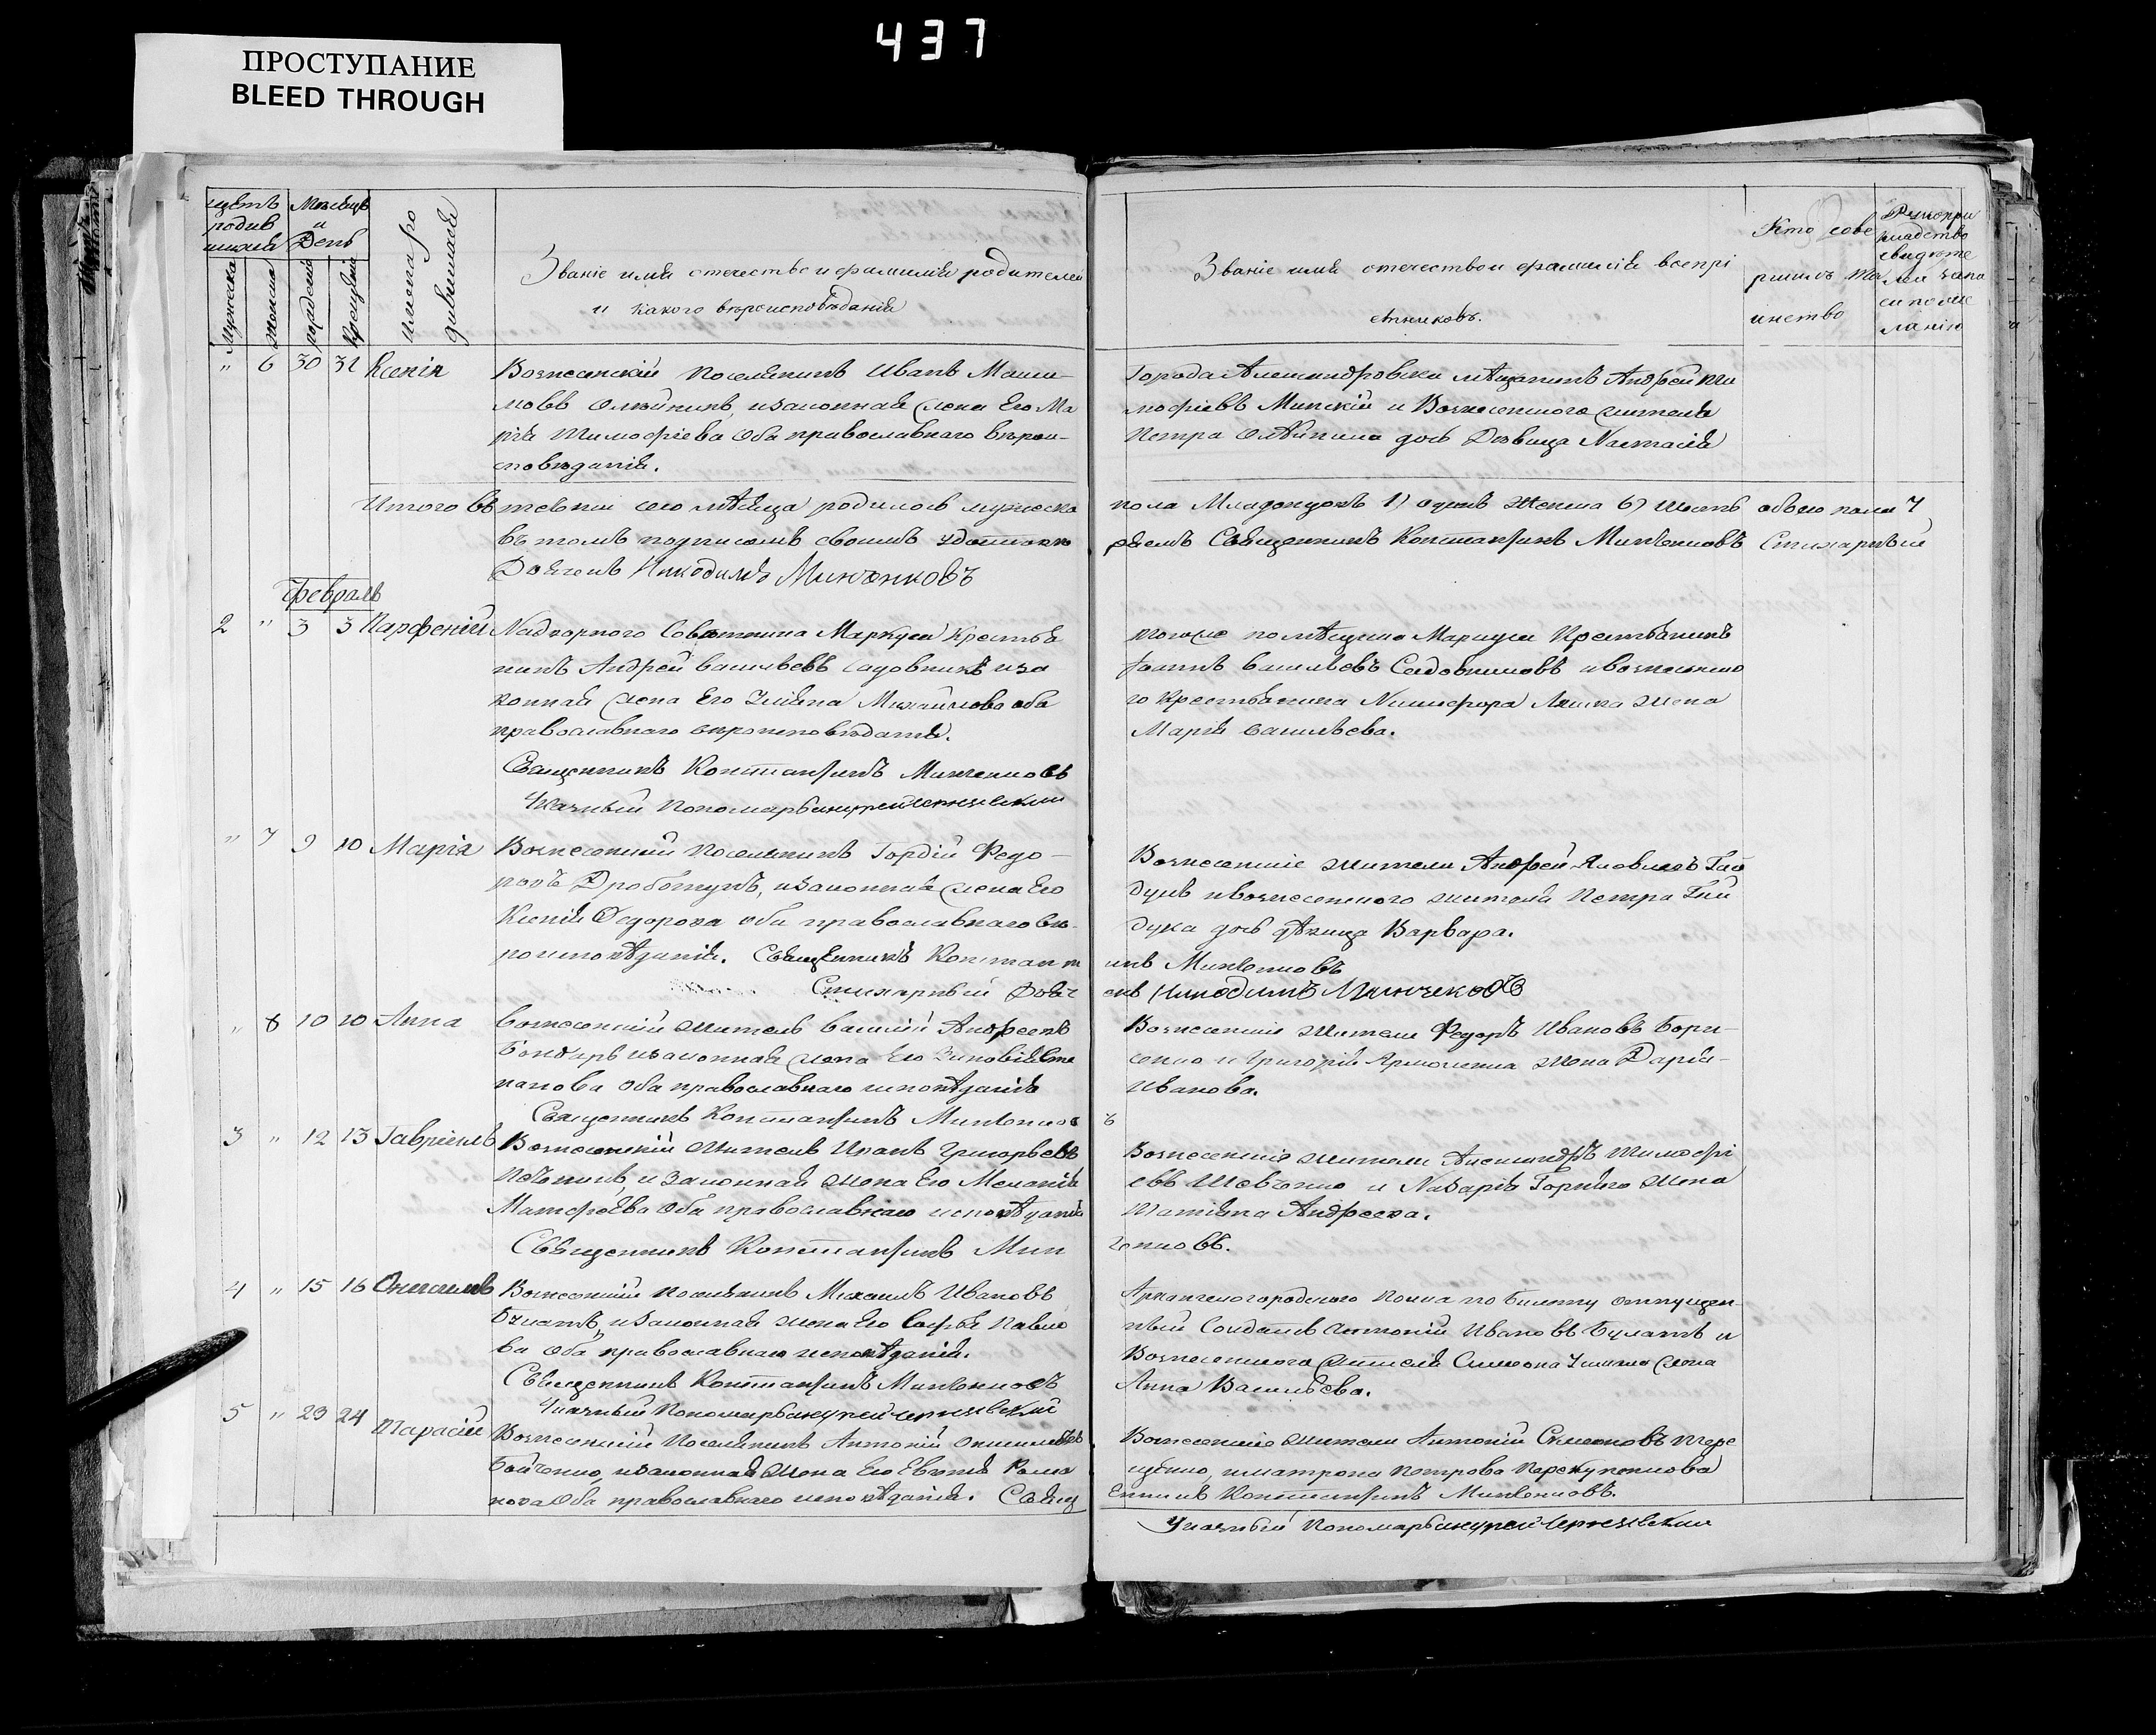 437
ПРОСТУПАНИЕ
BLEED THROUGH
щетъ родив шихся
Мѣсяцъ и День
Мужеска
Женска
рожденія
крещенія
имена ро дившихся
Званіе имя отечество и фамилія родителей
и какого вѣроисповѣданія
Званіе имя отечество и фамилія воспрі
емниковъ.
Кто сове
ршилъ та
инство
Рукопри
кладство
свидѣте
лей запи
си по же
ланію
" 6 30 31 Ксенія
Вознесенскій поселянинъ Иванъ Макси
мовъ Олейникъ, изаконная жена Его Ма
рія Тимофіева Оба православнаго вѣрои-
сповѣданія.
Города Александровска мѣщанинъ Андрей Ти
мофіевъ Минскій и Вознесенского жителя
Петра Олѣйника дочь Дѣвица Настасія
Итого въ теченіи сего мѣсяца родилось мужеска
пола Младенцовъ 1) одинъ Женска 6) шесть обоего пола 7
въ томъ подписомъ своимъ удостовѣ
ряемъ Священникъ Константинъ Минченковъ Стихарный
Дьячекъ Никодимъ Минченковъ
Февраль
2 " 3 3 Парфеній
Надворного Совѣтника Маркуса Крестья
нинъ Андрей Васильевъ Садовникъ иза
конная жена Его Уліяна Михайлова оба
православнаго вѣроисповѣданія.
Священникъ Константинъ Минченковъ
Указный Пономарь
тогоже помѣщика Маркуса Крестьянинъ
Іоаннъ Васильевъ Садовниковъ ивознесенско
го Крестьянина Никифора Ляшка жена
Марія Васильева.
" 7 9 10 Марія
Вознесенскій поселянинъ Гордій Федо-
ровъ Дроботунъ, изаконная жена Его
Ксенія Федорова оба православнаго вѣ-
роисповѣданія. Священникъ Констант
Стихарный Дьяч
Вознесенскіе жители Андрей Яковлевъ Гай
дукъ ивознесенского жителя Петра Гай
дука дочь дѣвица Варвара.
инъ Минченковъ
екъ Никодимъ Минченковъ
" 8 10 10 Анна
Вознесенскій житель Василій Андреевъ
Бондарь изаконная жена Его Зиновія Сте
панова Оба православнаго исповѣданія
Священникъ Константинъ Минченков
Вознесенскіе жители Федоръ Ивановъ Бори-
сенко и Григорія Ярмоленка жена Дарія
Иванова.
ъ
3 " 12 13 Гавріилъ
Вознесенскій житель Иванъ Григорьевъ
и Законная жена Его Меланія
Матфѣева Оба православнаго исповѣданія
Священникъ Константинъ Мин
Вознесенскіе жители Александръ Тимофі
евъ Шевченко и Назарія жена
Татіяна Андреева.
ченковъ.
4 " 15 16 Онисимъ
Вознесенскій поселянинъ Михаилъ Ивановъ
Булатъ, изаконная жена Его Софья Павло
ва Оба православнаго исповѣданія.
Священникъ Константинъ Минченковъ
Указный Пономарь
Архангелогородского полка по билету отпущен-
ный Солдатъ Антоній Ивановъ Булатъ и
Вознесенского жителя Симеона жена
Анна Васильева.
5 " 23 24 Тарасій
Вознесенскій Поселянинъ Антоній
Бойченко, изаконная жена Его Евгенія Рома
нова Оба православнаго исповѣданія. Свящ
Вознесенскіе жители Антоній Симеоновъ Тере
щенко, иматрона Петрова
енникъ Константинъ Минченковъ.
Указный Пономарь